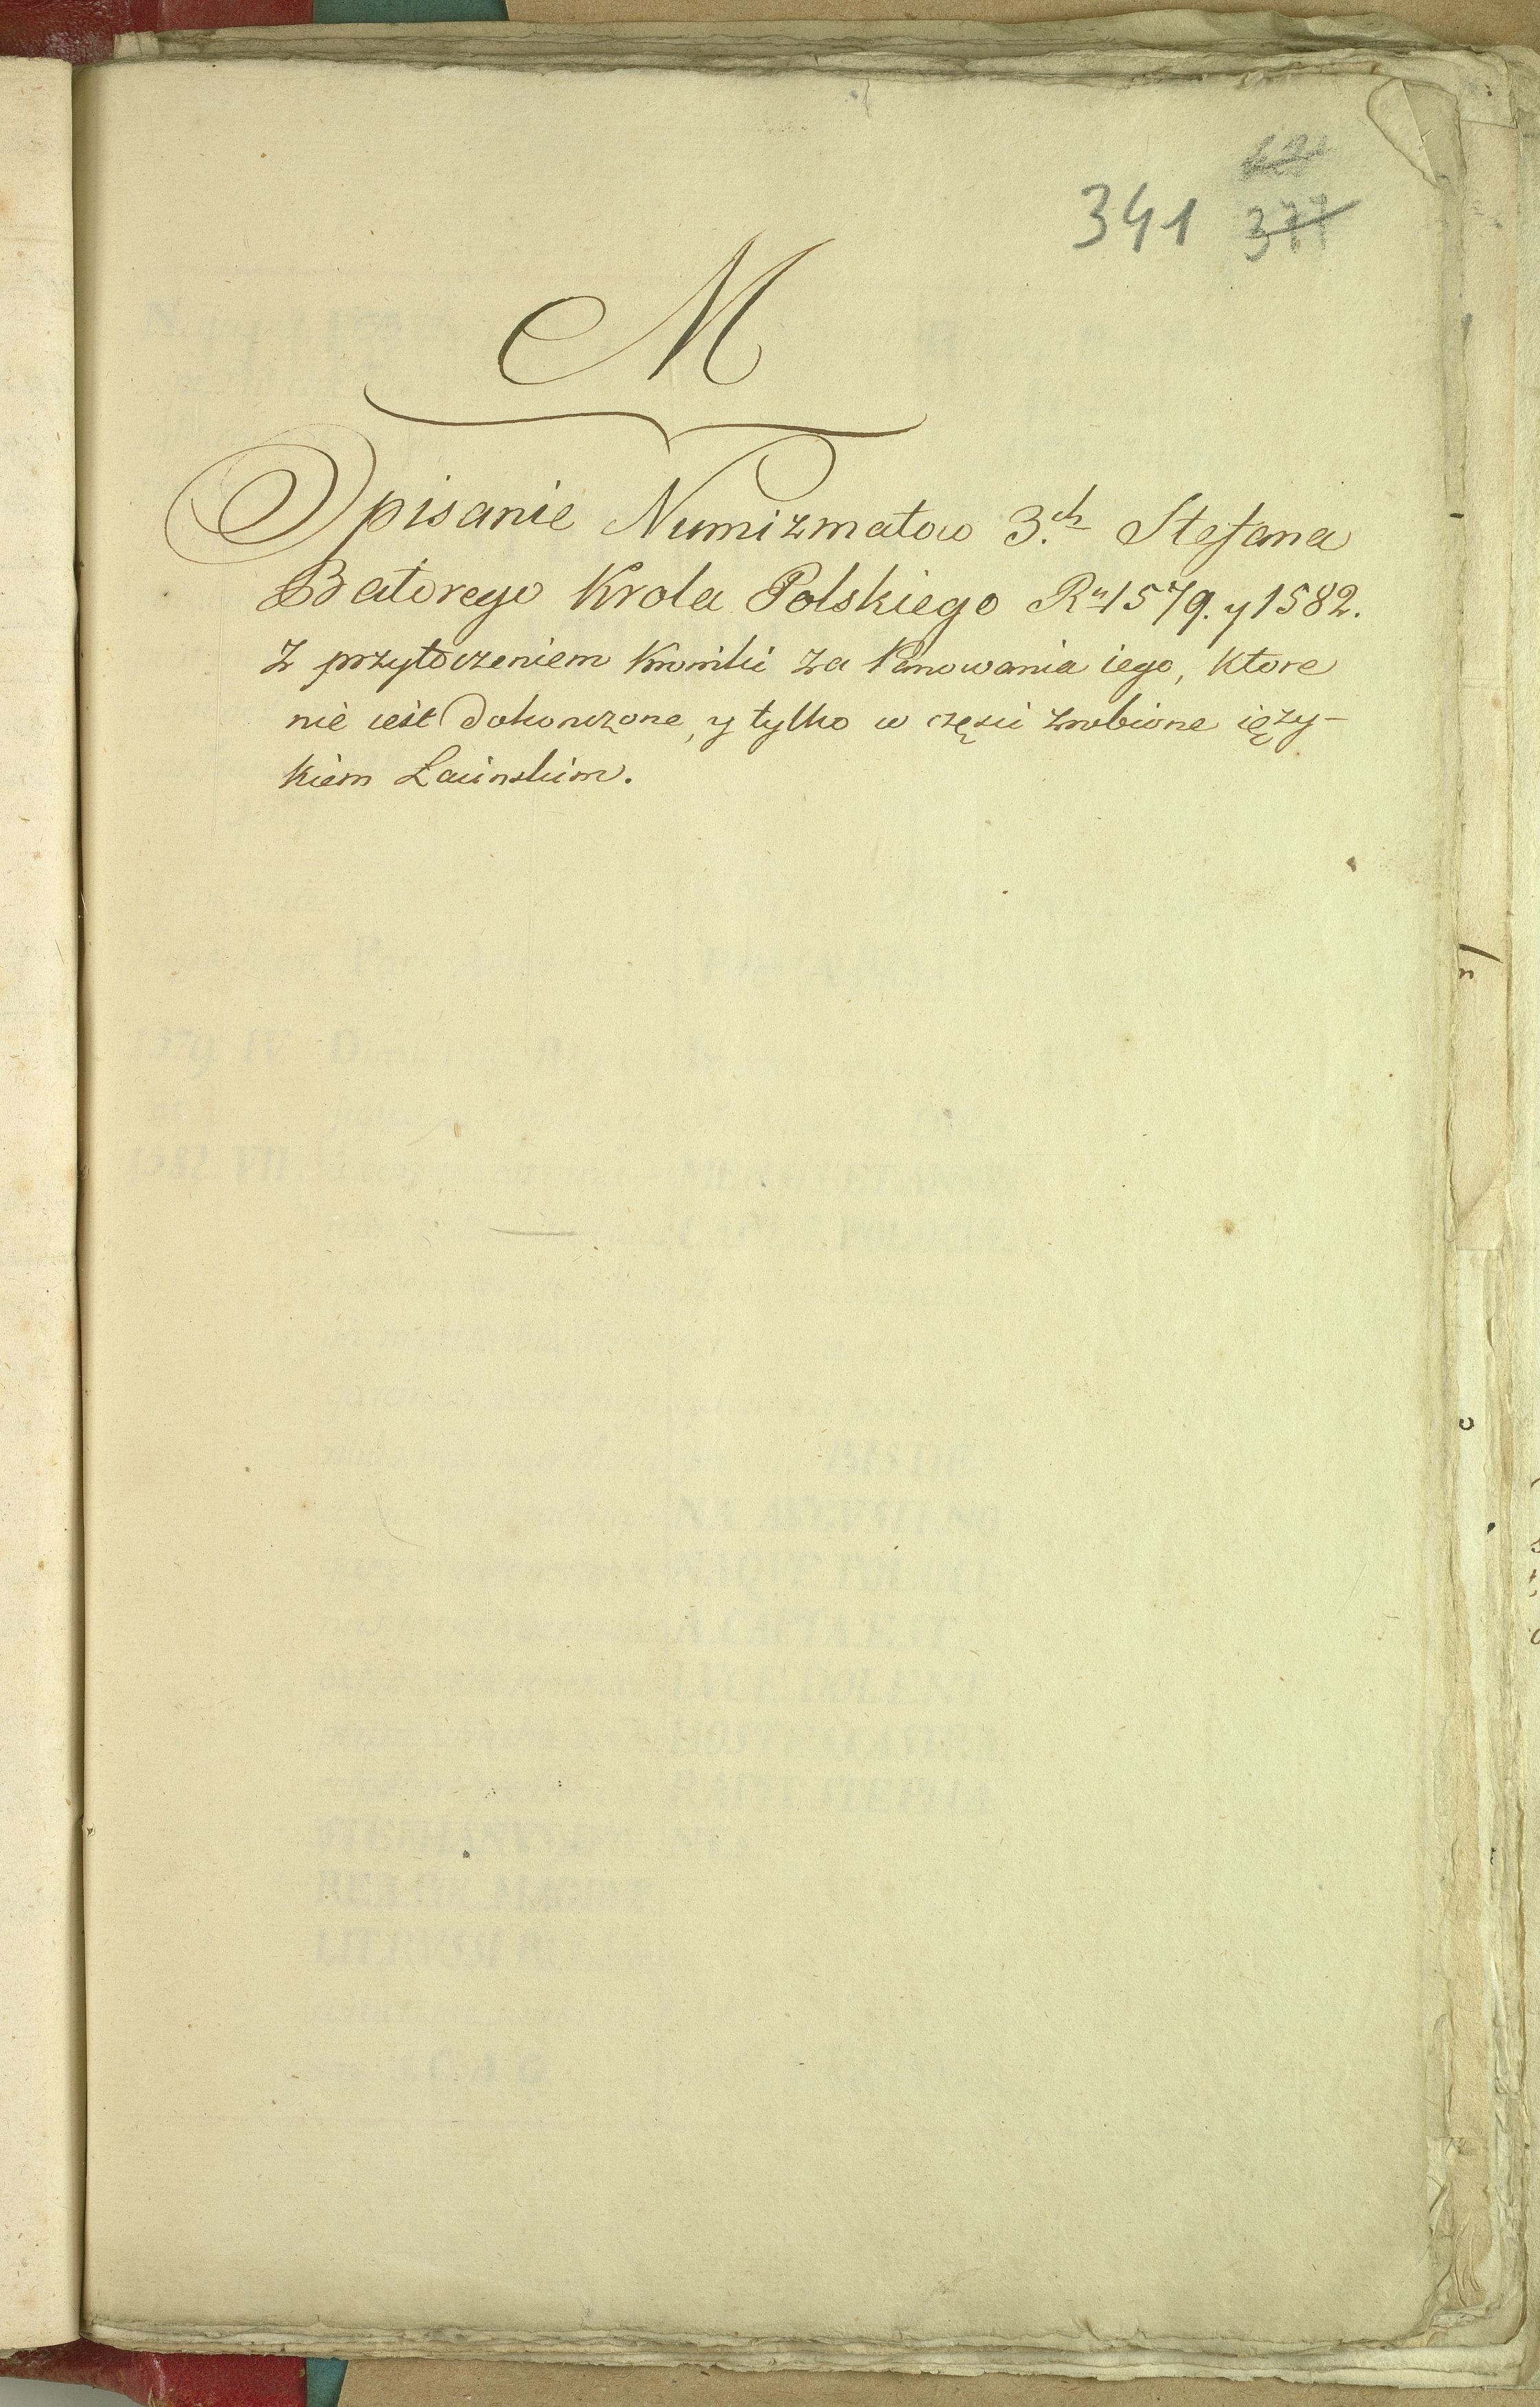 341 377
M
Opisanie Numizmatow 3.ch Stefana
Batorego Krola Polskiego Ru 1579. y 1582.
z przytoczeniem Kroniki za Panowania iego, ktore
nie iest dokonczone, y tylko w częsci zrobione ięzy-
kiem Łacinskim.